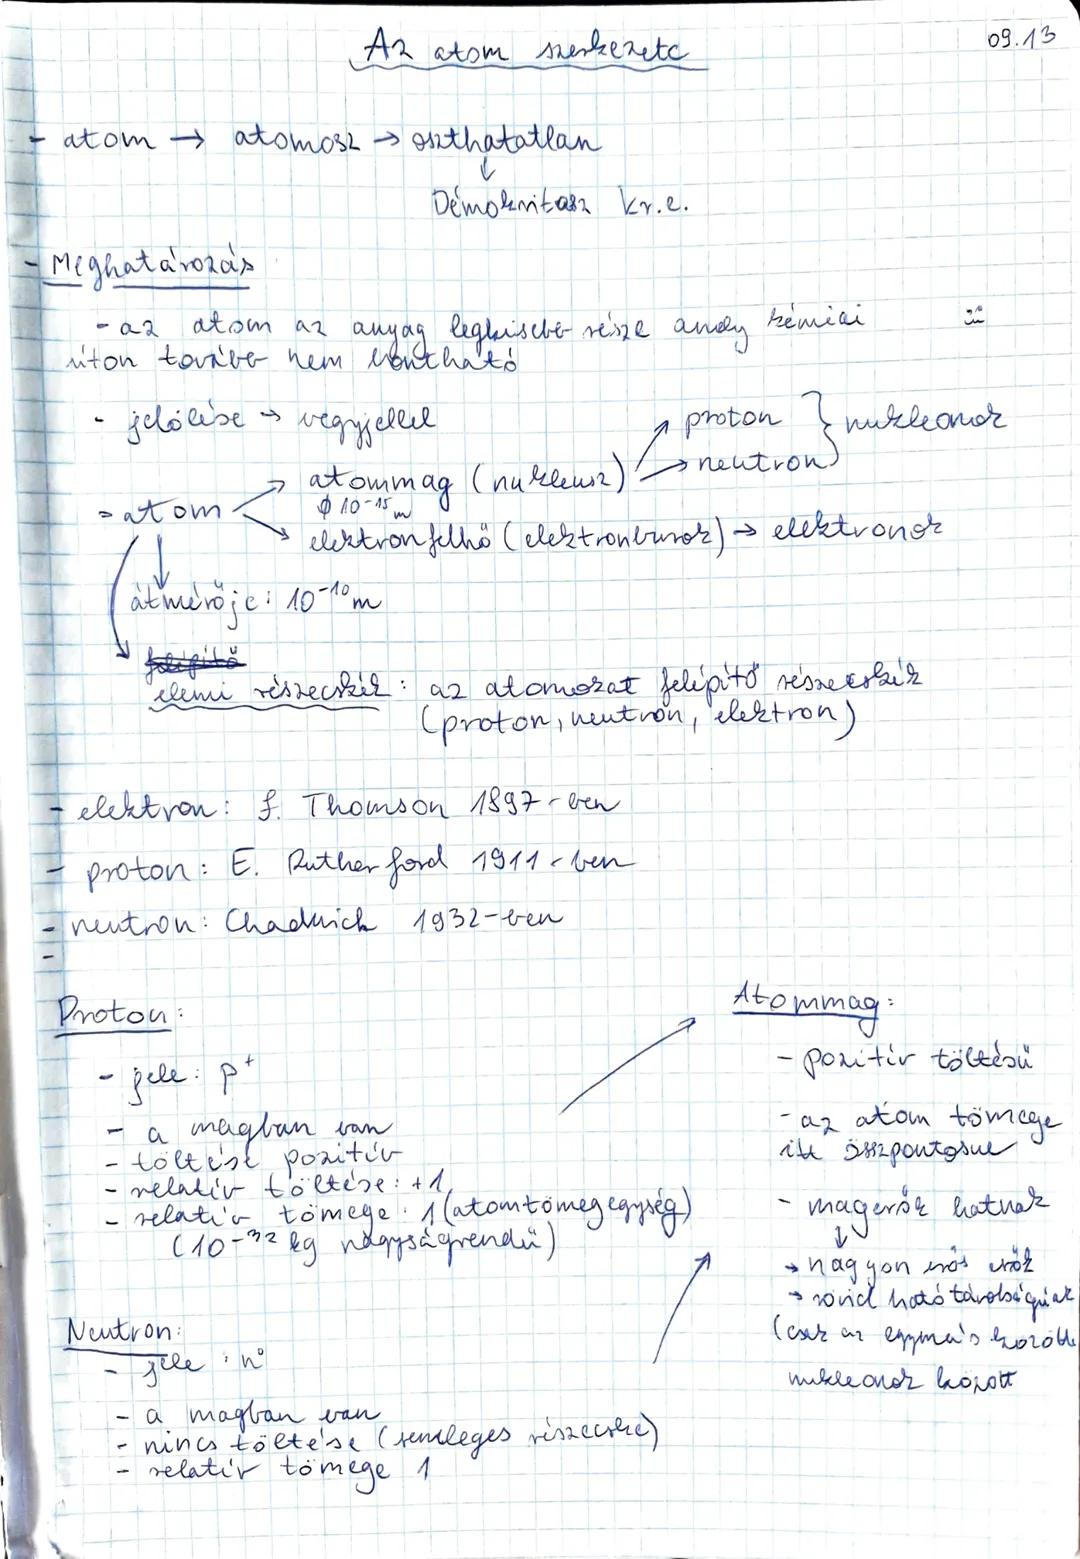 Az atom szerkezete
09.13
- atom → atomosz → oszthatatlan
↓
Démokritosz kr.e.
- Meghatározás
- az atom az anyag legkisebb része amely kémiai
úton tovább nem bontható
- jelölése → vegyjellel
- atom
atommag (nukleusz)
ϕ 10⁻¹⁵ m
→ proton
→ neutron
} nukleonok
elektronfelhő (elektronburok) → elektronok
átmérője: 10⁻¹⁰ m
felépítő
elemi részecskék: az atomokat felépítő részecskék
(proton, neutron, elektron)
- elektron: J. Thomson 1897-ben
- proton: E. Rutherford 1911-ben
- neutron: Chadwick 1932-ben
-
Proton:
- jele: p⁺
- a magban van
- töltése pozitív
- relatív töltése: +1
- relatív tömege: 1 (atomtömegegység)
(10⁻³² kg nagyságrendű)
Neutron:
- jele: n⁰
- a magban van
- nincs töltése (semleges részecske)
- relatív tömege 1
Atommag:
- pozitív töltésű
- az atom tömege
itt összpontosul
- magerők hatnak
↓
→ nagyon erős erők
→ rövid ható távolságúak
(csak az egymás közötti
nukleonok között